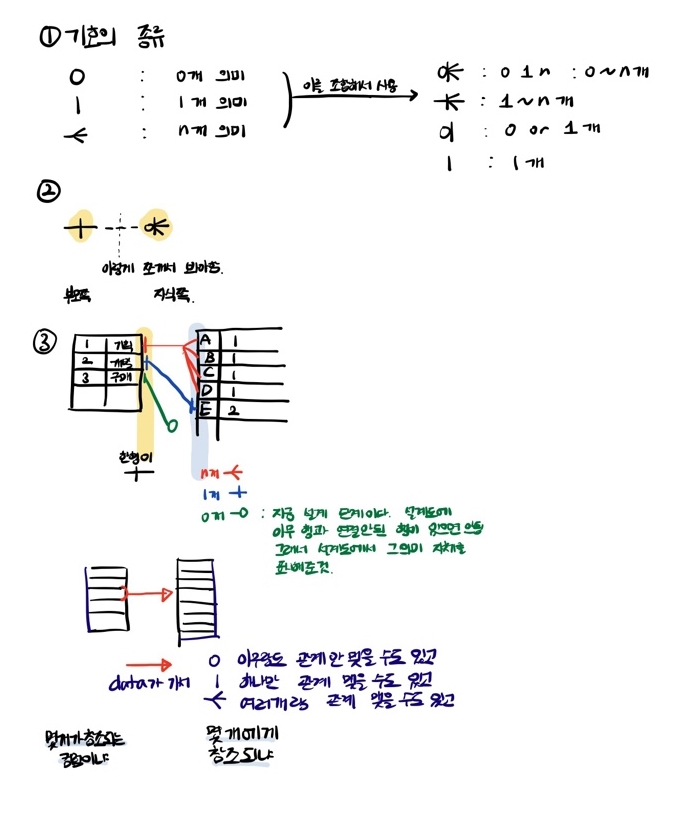 ① 기호의 종류
O : 0개 의미
| : 1개 의미
: n개 의미
이를 조합해서 사용
: 0 1 n : 0~n개
: 1~n개
: 0 or 1개
| : 1개
②
이렇게 쪼개서 봐야함.
부모쪽 자식쪽.
③
1 기획 A 1
2 B 1
3 구매 C 1
D 1
E 2
한행이
n개
1개
0개 : 지금 설계 단계이다. 설계도에
아무 행과 연결안된 행이 있으면 안됨
그래서 설계도에서 그 의미 자체를
표시해준것.
data가 가서
O 아무랑도 관계 안 맺을 수도 있고
| 하나만 관계 맺을 수도 있고
여러개랑 관계 맺을 수도 있고
몇개가 참조되는
몇 개에게
참조되냐